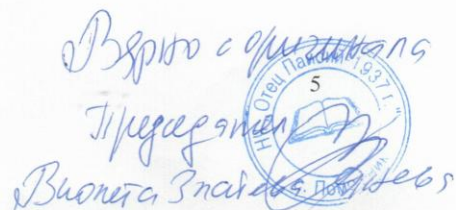 Вярно с оригинала
5
Председател
Виолета Златева
НЧ "Отец Паисий 1937 г."